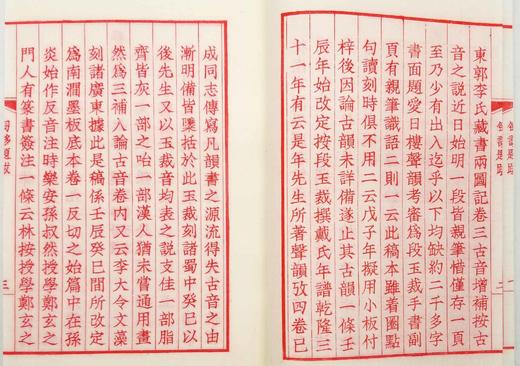 東郭李氏藏書兩圖記卷三古音增補按古
音之說近日始明一段皆親筆惜僅存一頁
至乃少有出入迄乎以下均缺約二千多字
書面題愛日樓聲韻考審爲段玉裁手書副
頁有親筆識語二則一云此稿本雖着圈點
句讀刻時俱不用二云戊子年擬用小板付
梓後因論古韻未詳備遂止其古韻一條壬
辰年始改定按段玉裁撰戴氏年譜乾隆三
十一年有云是年先生所著聲韻攷四卷已
成同志傳寫凡韻書之源流得失古音之由
漸明備皆檃括於此玉裁刻諸蜀中癸巳以
後先生又以玉裁音均表之說支佳一部脂
齊皆灰一部之咍一部漢人猶未嘗通用畫
然爲三補入論古音卷內又云李大令文藻
刻諸廣東據此是稿係壬辰癸巳間所改定
爲南澗墨板底本卷一反切之始篇中在孫
炎始作反音注時樂安孫叔然授學鄭玄之
門人有篆書簽注一條云林按授學鄭玄之
三